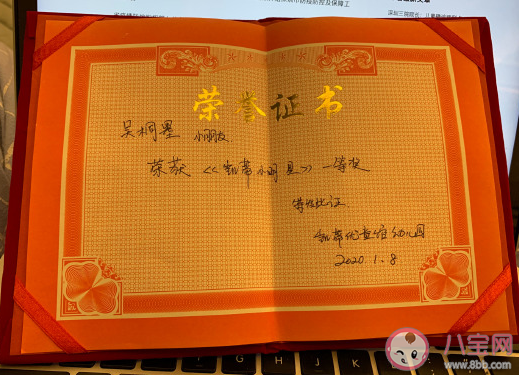 荣誉证书
吴桐墨 小朋友
荣获《凯蒂小明星》一等奖
特发此证
幼儿园
2020.1.8
八宝网
www.8bb.com